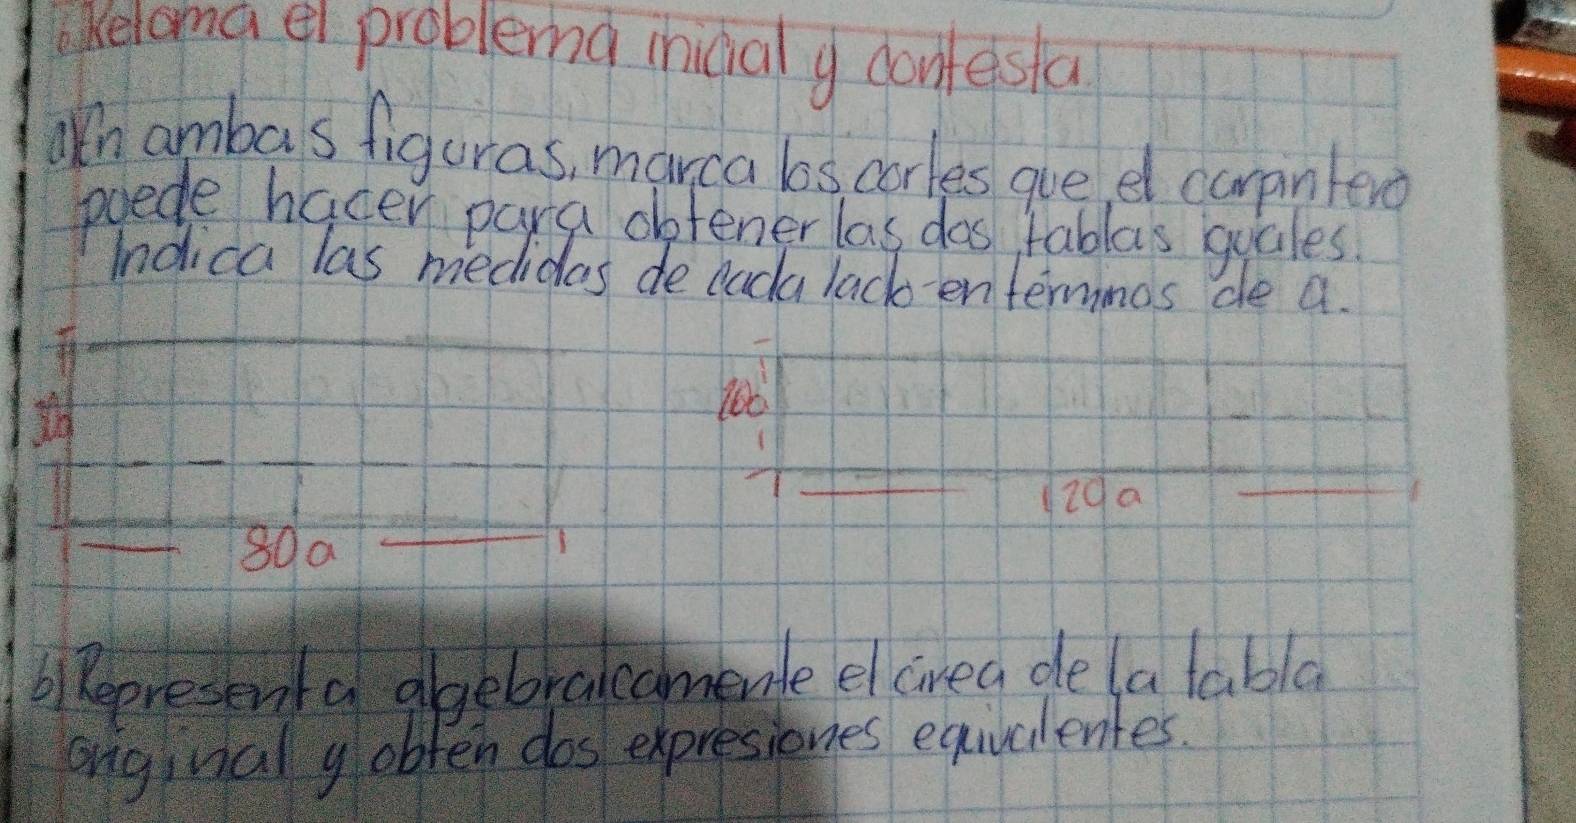 Retoma el problema inicial y contesta
a) En ambas figuras, marca los cortes que el carpintero
puede hacer para obtener las dos tablas iguales.
Indica las medidas de cada lado en términos de a.
80a
120a
b) Representa algebraicamente el área de la tabla
original y obten dos expresiones equivalentes.